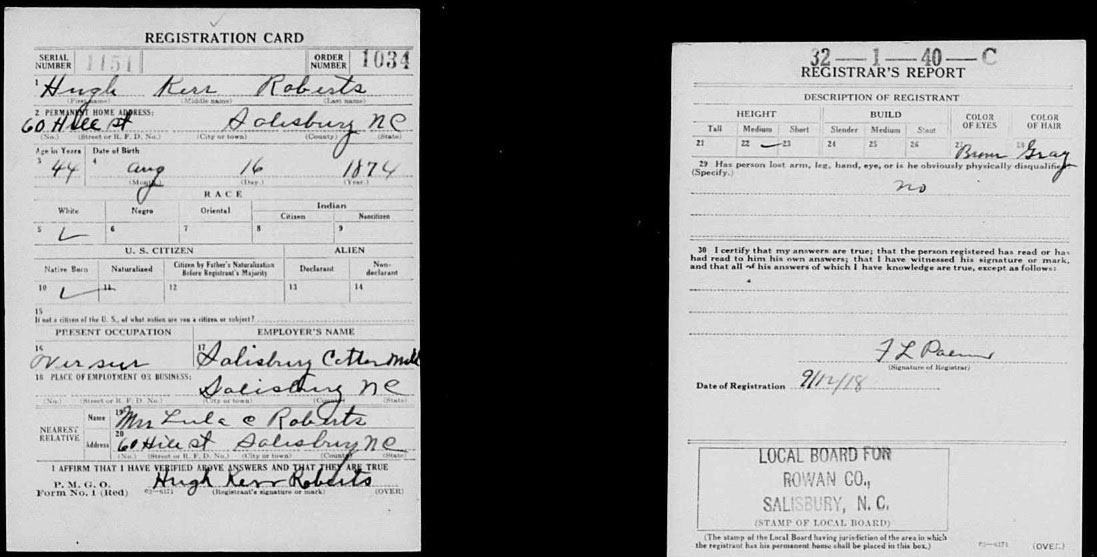 REGISTRATION CARD
SERIAL NUMBER 1151 ORDER NUMBER 1034
1 Hugh Kerr Roberts
(First name) (Middle name) (Last name)
2 PERMANENT HOME ADDRESS:
60 Hill st Salisbury NC
(No.) (Street or R. F. D. No.) (City or town) (County) (State)
Age in Years Date of Birth
3 44 4 Aug 16 1874
(Month.) (Day.) (Year.)
RACE
White Negro Oriental Indian
Citizen Noncitizen
5 6 7 8 9
U. S. CITIZEN ALIEN
Native Born Naturalized Citizen by Father's Naturalization Before Registrant's Majority Declarant Non-declarant
10 11 12 13 14
15
If not a citizen of the U. S., of what nation are you a citizen or subject?
PRESENT OCCUPATION EMPLOYER'S NAME
16 17
Salisbury Cotton Mill
18 PLACE OF EMPLOYMENT OR BUSINESS:
Salisbury NC
(No.) (Street or R. F. D. No.) (City or town) (County) (State)
NEAREST RELATIVE Name 19 Mrs Lula C Roberts
Address 20 60 Hill st Salisbury NC
(No.) (Street or R. F. D. No.) (City or town) (County) (State)
I AFFIRM THAT I HAVE VERIFIED ABOVE ANSWERS AND THAT THEY ARE TRUE
P. M. G. O.
Form No. 1 (Red) Hugh Kerr Roberts
(Registrant's signature or mark) (OVER)
32—1—40—C
REGISTRAR'S REPORT
DESCRIPTION OF REGISTRANT
HEIGHT BUILD COLOR OF EYES COLOR OF HAIR
Tall Medium Short Slender Medium Stout
21 22 23 24 25 26 27 Brown 28 Gray
29 Has person lost arm, leg, hand, eye, or is he obviously physically disqualified?
(Specify.)
no
30 I certify that my answers are true; that the person registered has read or has
had read to him his own answers; that I have witnessed his signature or mark,
and that all of his answers of which I have knowledge are true, except as follows:
F L
(Signature of Registrar)
Date of Registration 9/12/18
LOCAL BOARD FOR
ROWAN CO.,
SALISBURY, N. C.
(STAMP OF LOCAL BOARD)
(The stamp of the Local Board having jurisdiction of the area in which
the registrant has his permanent home shall be placed in this box.)
(OVER)